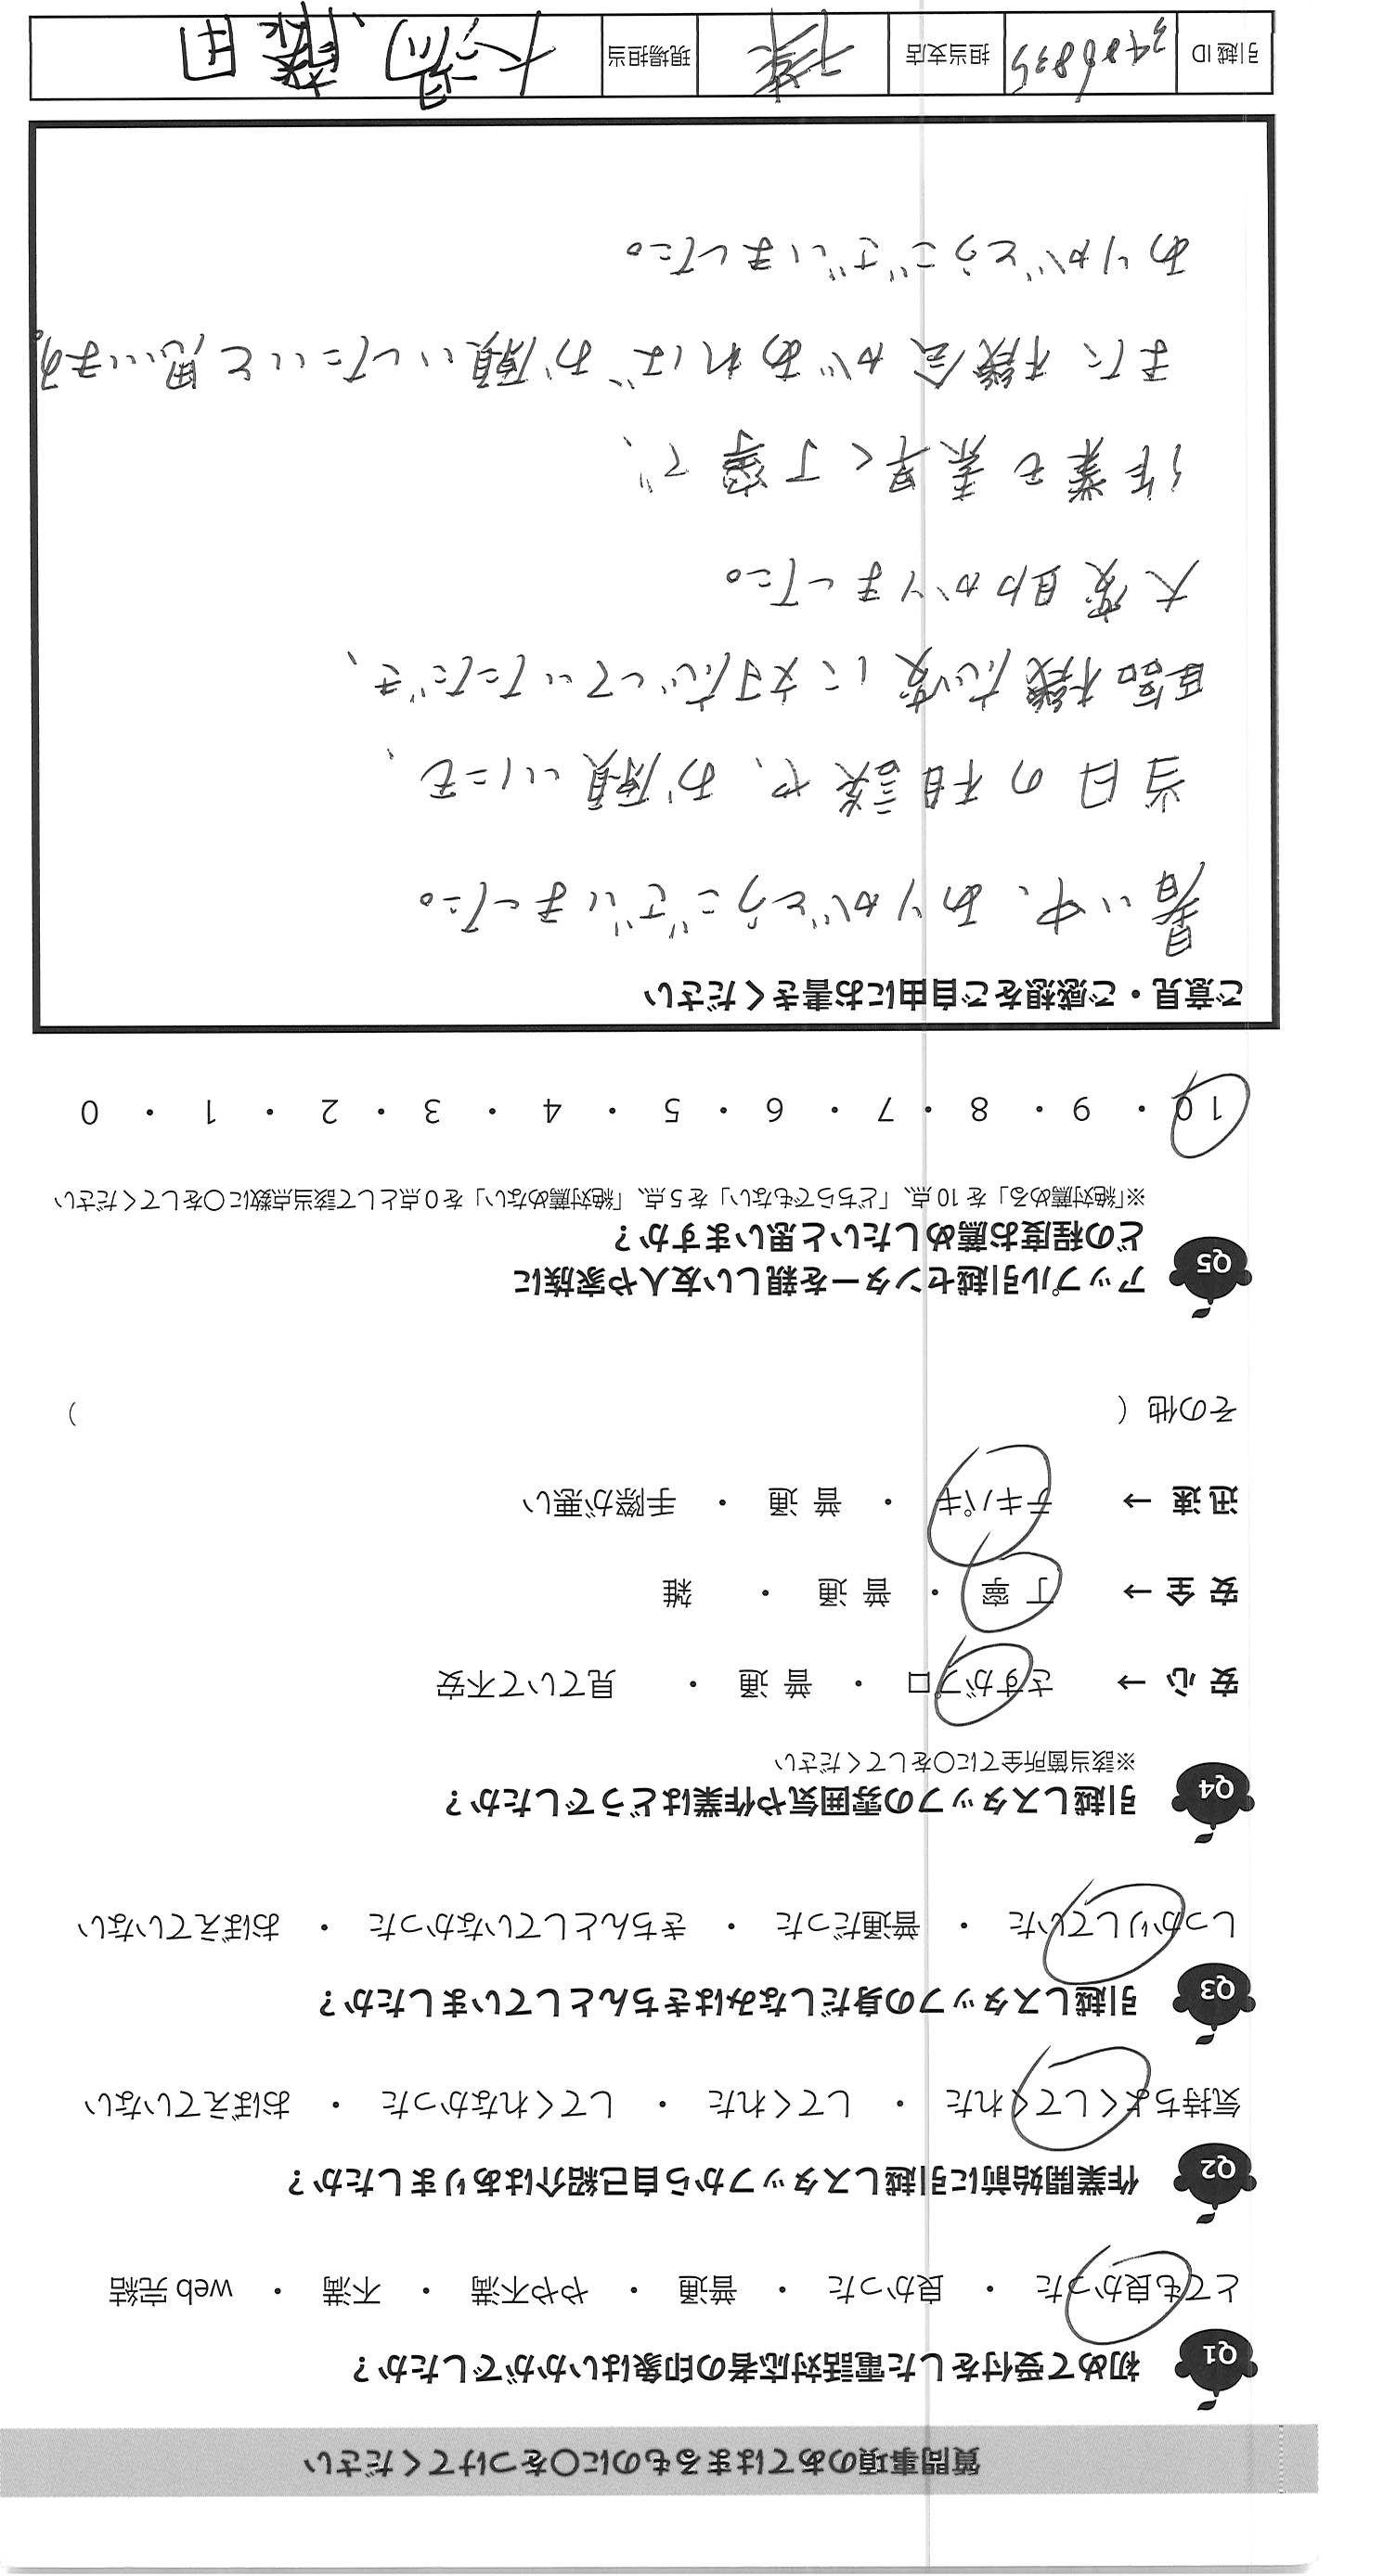 質問事項のあてはまるものに○をつけてください
Q1 初めて受付をした電話対応者の印象はいかがでしたか？
とても良かった ・ 良かった ・ 普通 ・ やや不満 ・ 不満 ・ web 完結
Q2 作業開始前に引越しスタッフから自己紹介はありましたか？
気持ちよくしてくれた ・ してくれた ・ してくれなかった ・ おぼえていない
Q3 引越しスタッフの身だしなみはきちんとしていましたか？
しっかりしていた ・ 普通だった ・ きちんとしていなかった ・ おぼえていない
Q4 引越しスタッフの雰囲気や作業はどうでしたか？
※該当箇所全てに○をしてください
安 心 → さすがプロ ・ 普 通 ・ 見ていて不安
安 全 → 丁 寧 ・ 普 通 ・ 雑
迅 速 → テキパキ ・ 普 通 ・ 手際が悪い
その他（ ）
Q5 アップル引越センターを親しい友人や家族に
どの程度お薦めしたいと思いますか？
※「絶対薦める」を 10 点、「どちらでもない」を 5 点、「絶対薦めない」を 0 点として該当点数に○をしてください
10 ・ 9 ・ 8 ・ 7 ・ 6 ・ 5 ・ 4 ・ 3 ・ 2 ・ 1 ・ 0
ご意見・ご感想をご自由にお書きください
暑い中、ありがとうございました。
当日の相談や、お願いにも、
臨機応変に対応していただき、
大変助かりました。
作業も素早く丁寧で、
また機会があればお願いしたいと思います。
ありがとうございました。
引越 ID 担当支店 現場担当